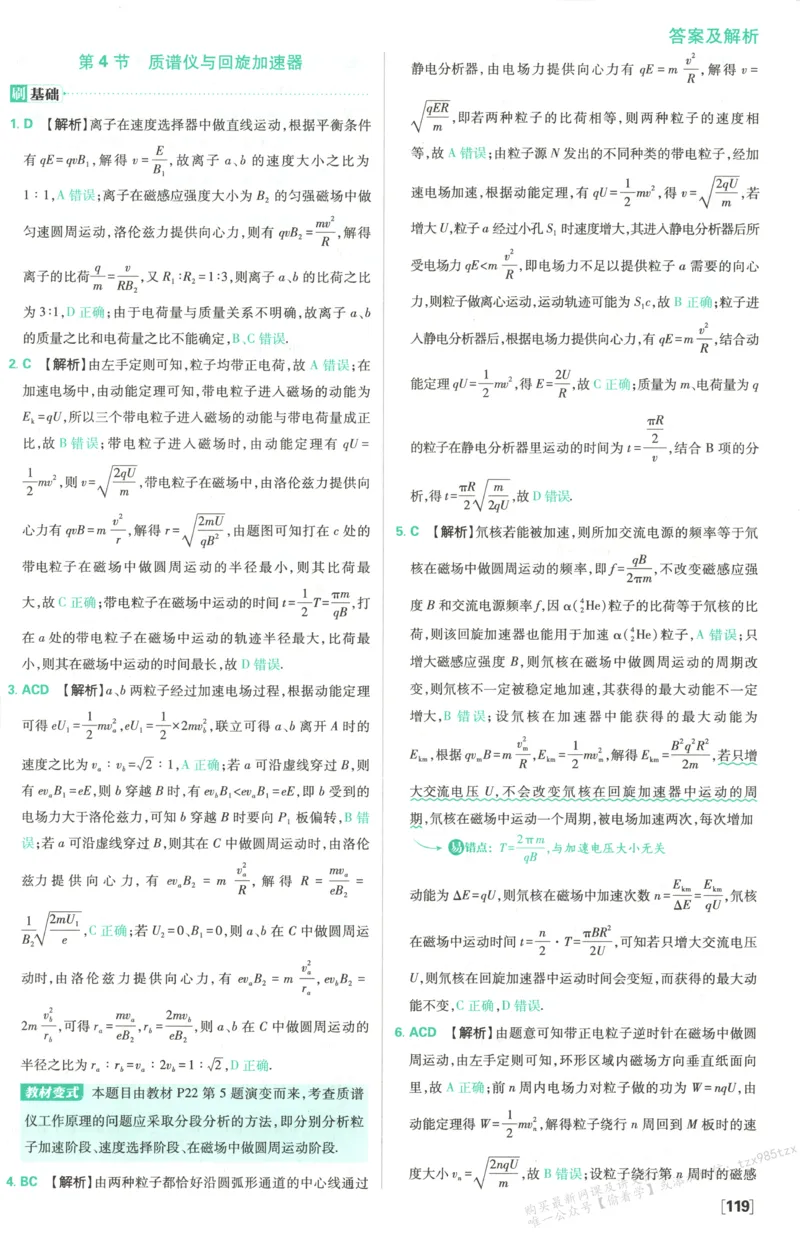 答案及解析
第4节 质谱仪与回旋加速器
刷基础
1. D 【解析】离子在速度选择器中做直线运动,根据平衡条件
有 qE=qvB₁,解得 v=E/B₁,故离子 a、b 的速度大小之比为
1∶1,A 错误;离子在磁感应强度大小为 B₂ 的匀强磁场中做
匀速圆周运动,洛伦兹力提供向心力,则有 qvB₂=mv²/R,解得
离子的比荷 q/m=v/RB₂,又 R₁∶R₂=1∶3,则离子 a、b 的比荷之比
为 3∶1,D 正确;由于电荷量与质量关系不明确,故离子 a、b
的质量之比和电荷量之比不能确定,B、C 错误.
2. C 【解析】由左手定则可知,粒子均带正电荷,故 A 错误;在
加速电场中,由动能定理可知,带电粒子进入磁场的动能为
Eₖ=qU,所以三个带电粒子进入磁场的动能与带电荷量成正
比,故 B 错误;带电粒子进入磁场时,由动能定理有 qU=
1/2 mv²,则 v=√(2qU/m),带电粒子在磁场中,由洛伦兹力提供向
心力有 qvB=m v²/r,解得 r=√(2mU/qB²),由题图可知打在 c 处的
带电粒子在磁场中做圆周运动的半径最小,则其比荷最
大,故 C 正确;带电粒子在磁场中运动的时间 t=1/2 T=πm/qB,打
在 a 处的带电粒子在磁场中运动的轨迹半径最大,比荷最
小,则其在磁场中运动的时间最长,故 D 错误.
3. ACD 【解析】a、b 两粒子经过加速电场过程,根据动能定理
可得 eU₁=1/2 mvₐ²,eU₁=1/2×2mv_b²,联立可得 a、b 离开 A 时的
速度之比为 vₐ∶v_b=√2∶1,A 正确;若 a 可沿虚线穿过 B,则
有 evₐB₁=eE,则 b 穿越 B 时,有 ev_bB₁<evₐB₁=eE,即 b 受到的
电场力大于洛伦兹力,可知 b 穿越 B 时要向 P₁ 板偏转,B 错
误;若 a 可沿虚线穿过 B,则其在 C 中做圆周运动时,由洛伦
兹力提供向心力,有 evₐB₂=m vₐ²/R,解得 R=mvₐ/eB₂=
1/B₂ √(2mU₁/e),C 正确;若 U₂=0、B₁=0,则 a、b 在 C 中做圆周运
动时,由洛伦兹力提供向心力,有 evₐB₂=m vₐ²/rₐ,ev_bB₂=
2m v_b²/r_b,可得 rₐ=mvₐ/eB₂,r_b=2mv_b/eB₂,则 a、b 在 C 中做圆周运动的
半径之比为 rₐ∶r_b=vₐ∶2v_b=1∶√2,D 正确.
教材变式 本题目由教材 P22 第 5 题演变而来,考查质谱
仪工作原理的问题应采取分段分析的方法,即分别分析粒
子加速阶段、速度选择阶段、在磁场中做圆周运动阶段.
4. BC 【解析】由两种粒子都恰好沿圆弧形通道的中心线通过
静电分析器,由电场力提供向心力有 qE=m v²/R,解得 v=
√(qER/m),即若两种粒子的比荷相等,则两种粒子的速度相
等,故 A 错误;由粒子源 N 发出的不同种类的带电粒子,经加
速电场加速,根据动能定理,有 qU=1/2 mv²,得 v=√(2qU/m),若
增大 U,粒子 a 经过小孔 S₁ 时速度增大,其进入静电分析器后所
受电场力 qE<m v²/R,即电场力不足以提供粒子 a 需要的向心
力,则粒子做离心运动,运动轨迹可能为 S₁c,故 B 正确;粒子进
入静电分析器后,根据电场力提供向心力,有 qE=m v²/R,结合动
能定理 qU=1/2 mv²,得 E=2U/R,故 C 正确;质量为 m、电荷量为 q
的粒子在静电分析器里运动的时间为 t=(πR/2)/v,结合 B 项的分
析,得 t=πR/2 √(m/2qU),故 D 错误.
5. C 【解析】氘核若能被加速,则所加交流电源的频率等于氘
核在磁场中做圆周运动的频率,即 f=qB/2πm,不改变磁感应强
度 B 和交流电源频率 f,因 α(⁴₂He)粒子的比荷等于氘核的比
荷,则该回旋加速器也能用于加速 α(⁴₂He)粒子,A 错误;只
增大磁感应强度 B,则氘核在磁场中做圆周运动的周期改
变,则氘核不一定被稳定地加速,其获得的最大动能不一定
增大,B 错误;设氘核在加速器中能获得的最大动能为
Eₖₘ,根据 qvₘB=m vₘ²/R,Eₖₘ=1/2 mvₘ²,解得 Eₖₘ=B²q²R²/2m,若只增
大交流电压 U,不会改变氘核在回旋加速器中运动的周
期,氘核在磁场中运动一个周期,被电场加速两次,每次增加
易错点: T=2πm/qB,与加速电压大小无关
动能为 ΔE=qU,则氘核在磁场中加速次数 n=Eₖₘ/ΔE=Eₖₘ/qU,氘核
在磁场中运动时间 t=n/2·T=πBR²/2U,可知若只增大交流电压
U,则氘核在回旋加速器中运动时间会变短,而获得的最大动
能不变,C 正确,D 错误.
6. ACD 【解析】由题意可知带正电粒子逆时针在磁场中做圆
周运动,由左手定则可知,环形区域内磁场方向垂直纸面向
里,故 A 正确;前 n 周内电场力对粒子做的功为 W=nqU,由
动能定理得 W=1/2 mvₙ²,解得粒子绕行 n 周回到 M 板时的速
度大小 vₙ=√(2nqU/m),故 B 错误;设粒子绕行第 n 周时的磁感
购买最新网课及讲义
唯一公众号【偷着学】
tzx985tzx
[119]